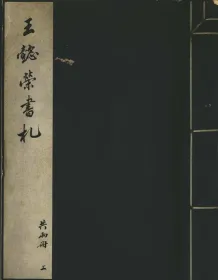 王懿榮書札
共兩册
二